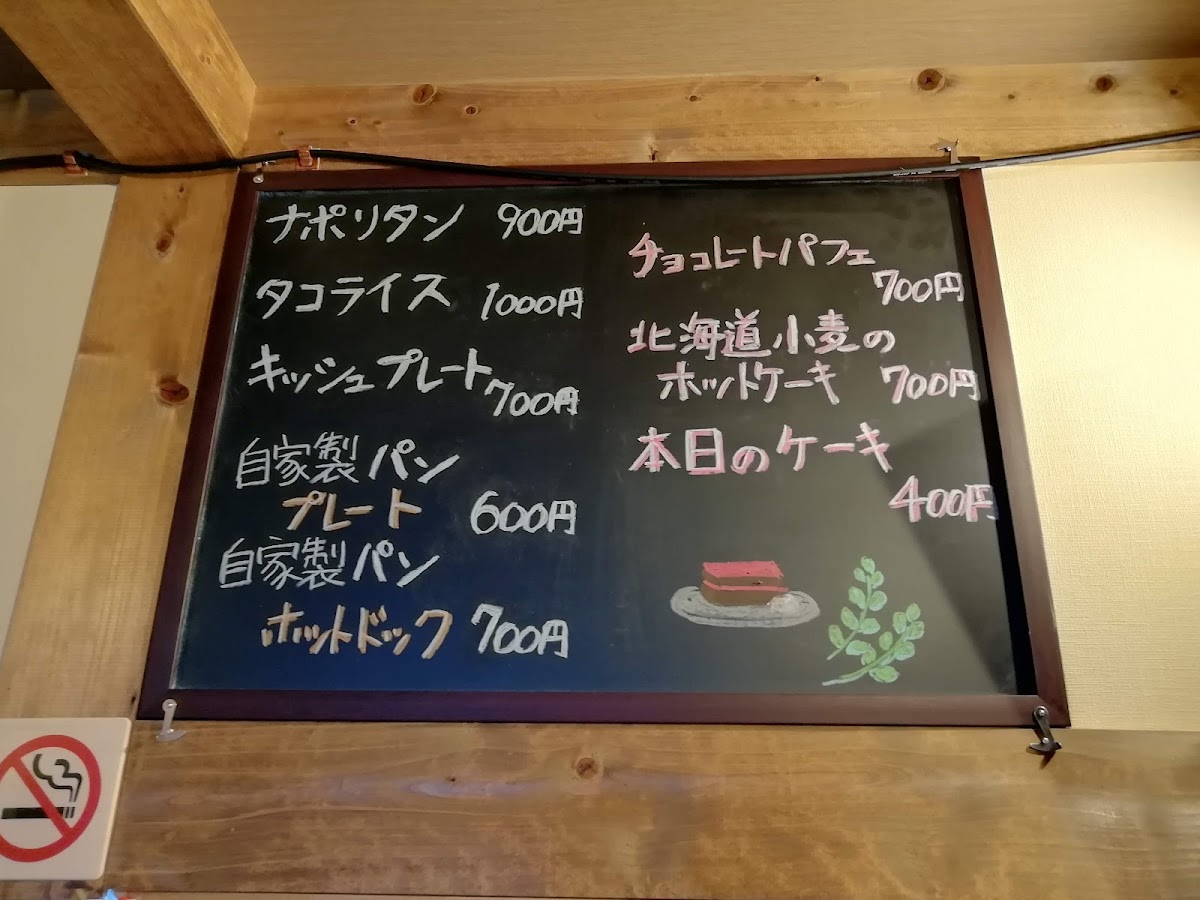 ナポリタン 900円
タコライス 1000円
キッシュプレート
700円
自家製パン
プレート 600円
自家製パン
ホットドック 700円
チョコレートパフェ
700円
北海道小麦の
ホットケーキ 700円
本日のケーキ
400円